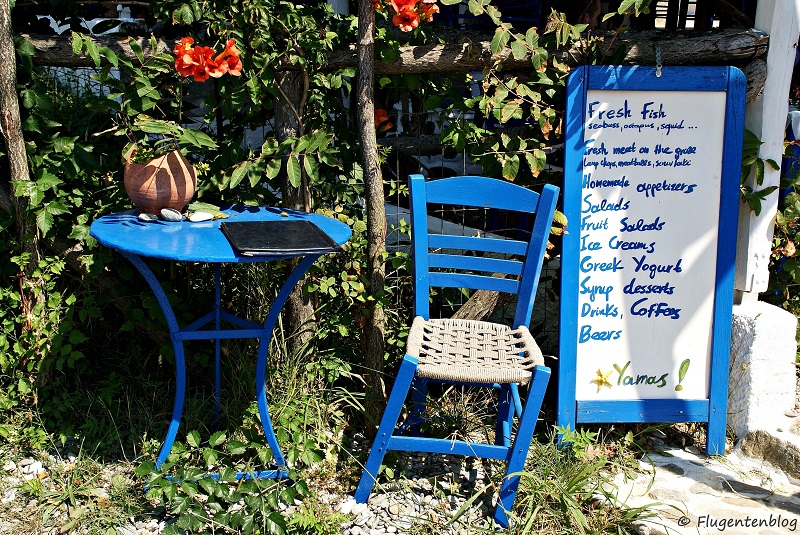 Fresh Fish
seabass, octopus, squid ...
Fresh meat on the grill
Lamp chops, meatballs,
Homemade appetizers
Salads
Fruit Salads
Ice Creams
Greek Yogurt
Syrup desserts
Drinks, Coffees
Beers
Yamas!
© Flugentenblog